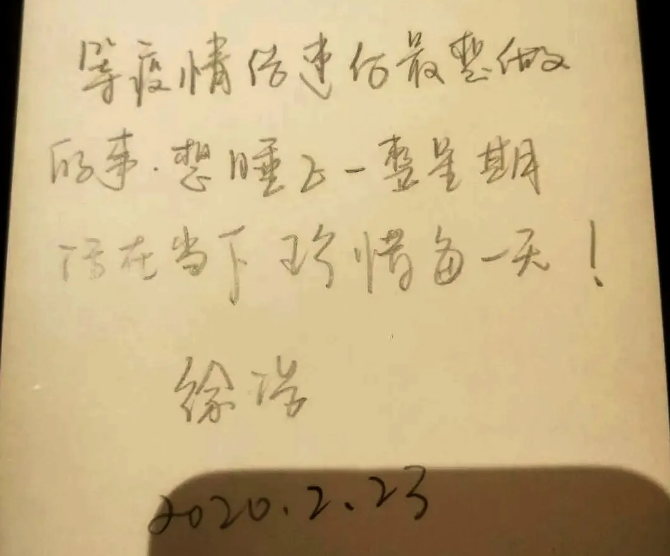 等疫情结速后最想做
的事.想睡上一整星期
活在当下 珍惜每一天！
徐浩
2020.2.23